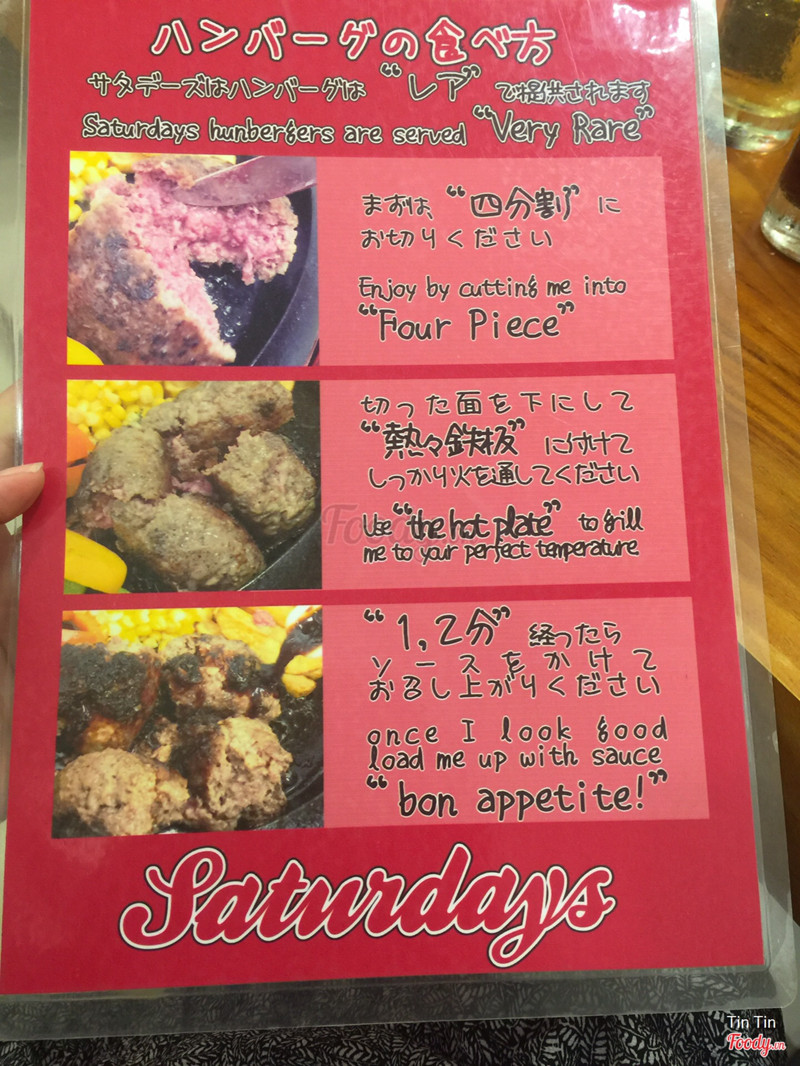 ハンバーグの食べ方
サタデーズはハンバーグは “レア” で提供されます
Saturdays hunbergers are served “Very Rare”
まずは、“四分割” に
お切りください
Enjoy by cutting me into
“Four Piece”
切った面を下にして
“熱々鉄板” に付けて
しっかり火を通してください
Use “the hot plate” to grill
me to your perfect temperature
“1,2分” 経ったら
ソースをかけて
お召し上がりください
once I look good
load me up with sauce
“bon appetite!”
Saturdays
Foody
Tin Tin
Foody.vn